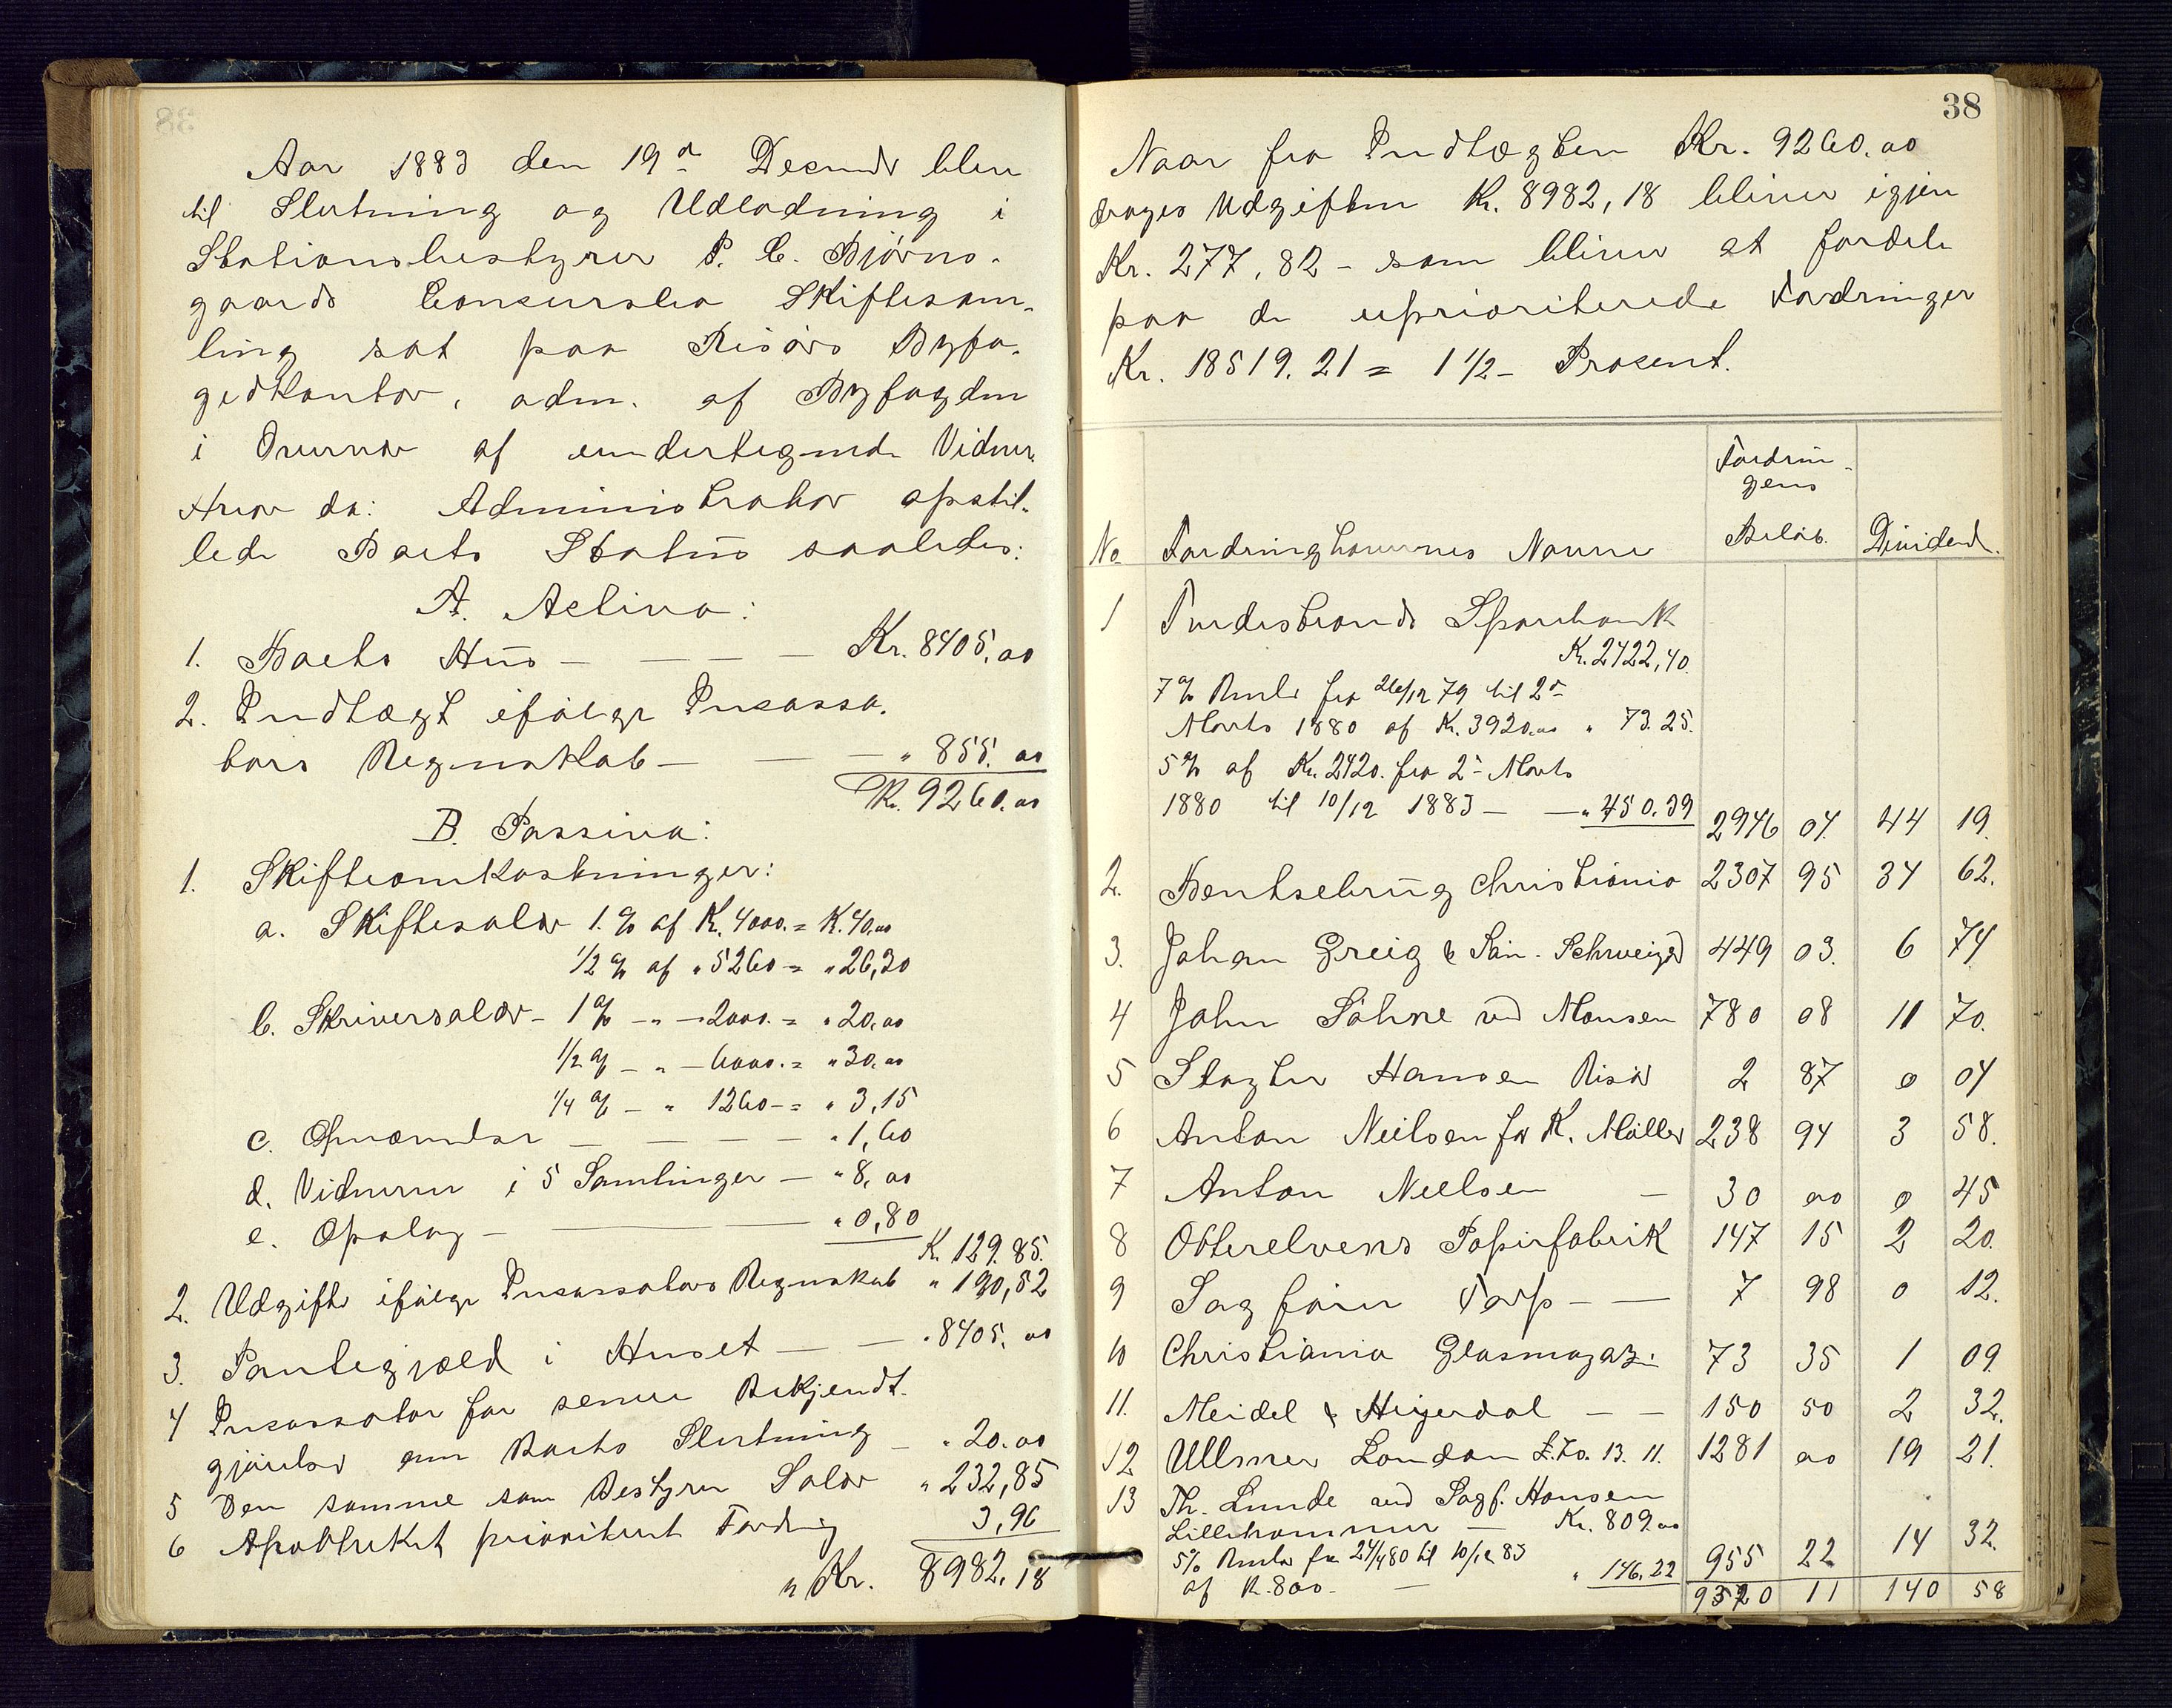 Aar 1883 den 19de Decembr blev
til Slutning og Udlodning i
Stationsbestyrer P. C. Bjørns-
gaards Concursbo Skiftesam-
ling sat paa Risørs Byfo-
gedkontor, adm. af Byfogden
i Overvær af undertegnede Vidner.
Hvor da: Administrator opstil-
lede Boets Status saaledes:
A. Activa:
1. Boets Hus — — — — Kr. 8405,00
2. Indtægt ifølge Incassa-
tors Regnskab — — — " 855,00
Kr. 9260,00
B. Passiva:
1. Skifteomkostninger:
a. Skiftesalær 1 % af Kr. 4000 = Kr. 40,00
1/2 % af " 5260 = " 26,30
b. Skriversalær — 1 % — " — 2000 = " 20,00
1/2 % — " — 6000 = " 30,00
1/4 % — " 1260 — = " 3,15
c. Opnævnelse — — — — " 1,60
d. Vidnerne i 5 Samlinger — " 8,00
e. Opslag — — — " 0,80
Kr. 129,85.
2. Udgifter ifølge Incassators Regnskab " 190,52
3. Pantegjæld i Huset — — " 8405,00
4 Incassator for senere Bekjendt-
gjørelser om Boets Slutning — " 20,00
5 Den samme som Bestyrer Salær " 232,85
6 Apotheket prioritert Fordring 3,96
Kr. 8982,18
38
Naar fra Indtægten Kr. 9260,00
drages Udgiften Kr. 8982,18 bliver igjen
Kr. 277,82 — som bliver at fordele
paa de uprioriterede Fordringer
Kr. 18519.21 = 1 1/2 — Procent.
No Fordringshavernes Navne Fordrin-
gens
Beløb. Dividend.
1 Sparebank
Kr. 2422,40.
7 % Rente fra 26/12 79 til 2den
Marts 1880 af Kr. 3920,00 " 73.25.
5 % af Kr. 2420. fra 2den Marts
1880 til 10/12 1883 — — " 450.39 2946 04. 44 19.
2. Bentsebrug Christiania 2307 95 34 62.
3. Johan Greig & Søn. Schweigrd 449 03. 6 74.
4 John Söhne ved Monsen 780 08 11 70.
5 Slagter Hansen Risør 2 87 0 04
6 Anton Nielsen for K. Møller 238 94 3 58.
7 Anton Nielsen — 30 00 0 45
8 Otterelvens Papirfabrik 147 15 2 20.
9 Sagfører Torp — — 7 98 0 12.
10 Christiania Glasmagaz: 73 35 1 09.
11. Meidel & Heyerdal — — 150 50 2 32.
12 Ullmer London £ 70. 13. 11. 1281 00 19 21.
13 Th. Lunde ved Sagf. Hansen
Lillehammer — Kr. 809.00
5% Rente fra 24/4 80 til 10/12 83
af Kr. 800. — " 146,22 955 22 14 32.
9370 11 140 58